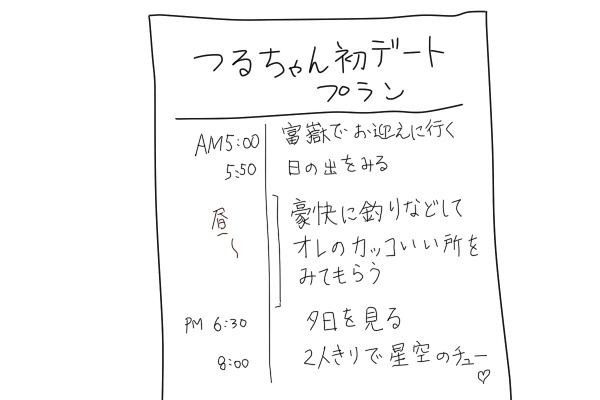 つるちゃん初デート
プラン
AM5:00 富嶽でお迎えに行く
5:50 日の出をみる
昼～ 豪快に釣りなどして
オレのカッコいい所を
みてもらう
PM 6:30 夕日を見る
8:00 2人きりで星空のチュー♡